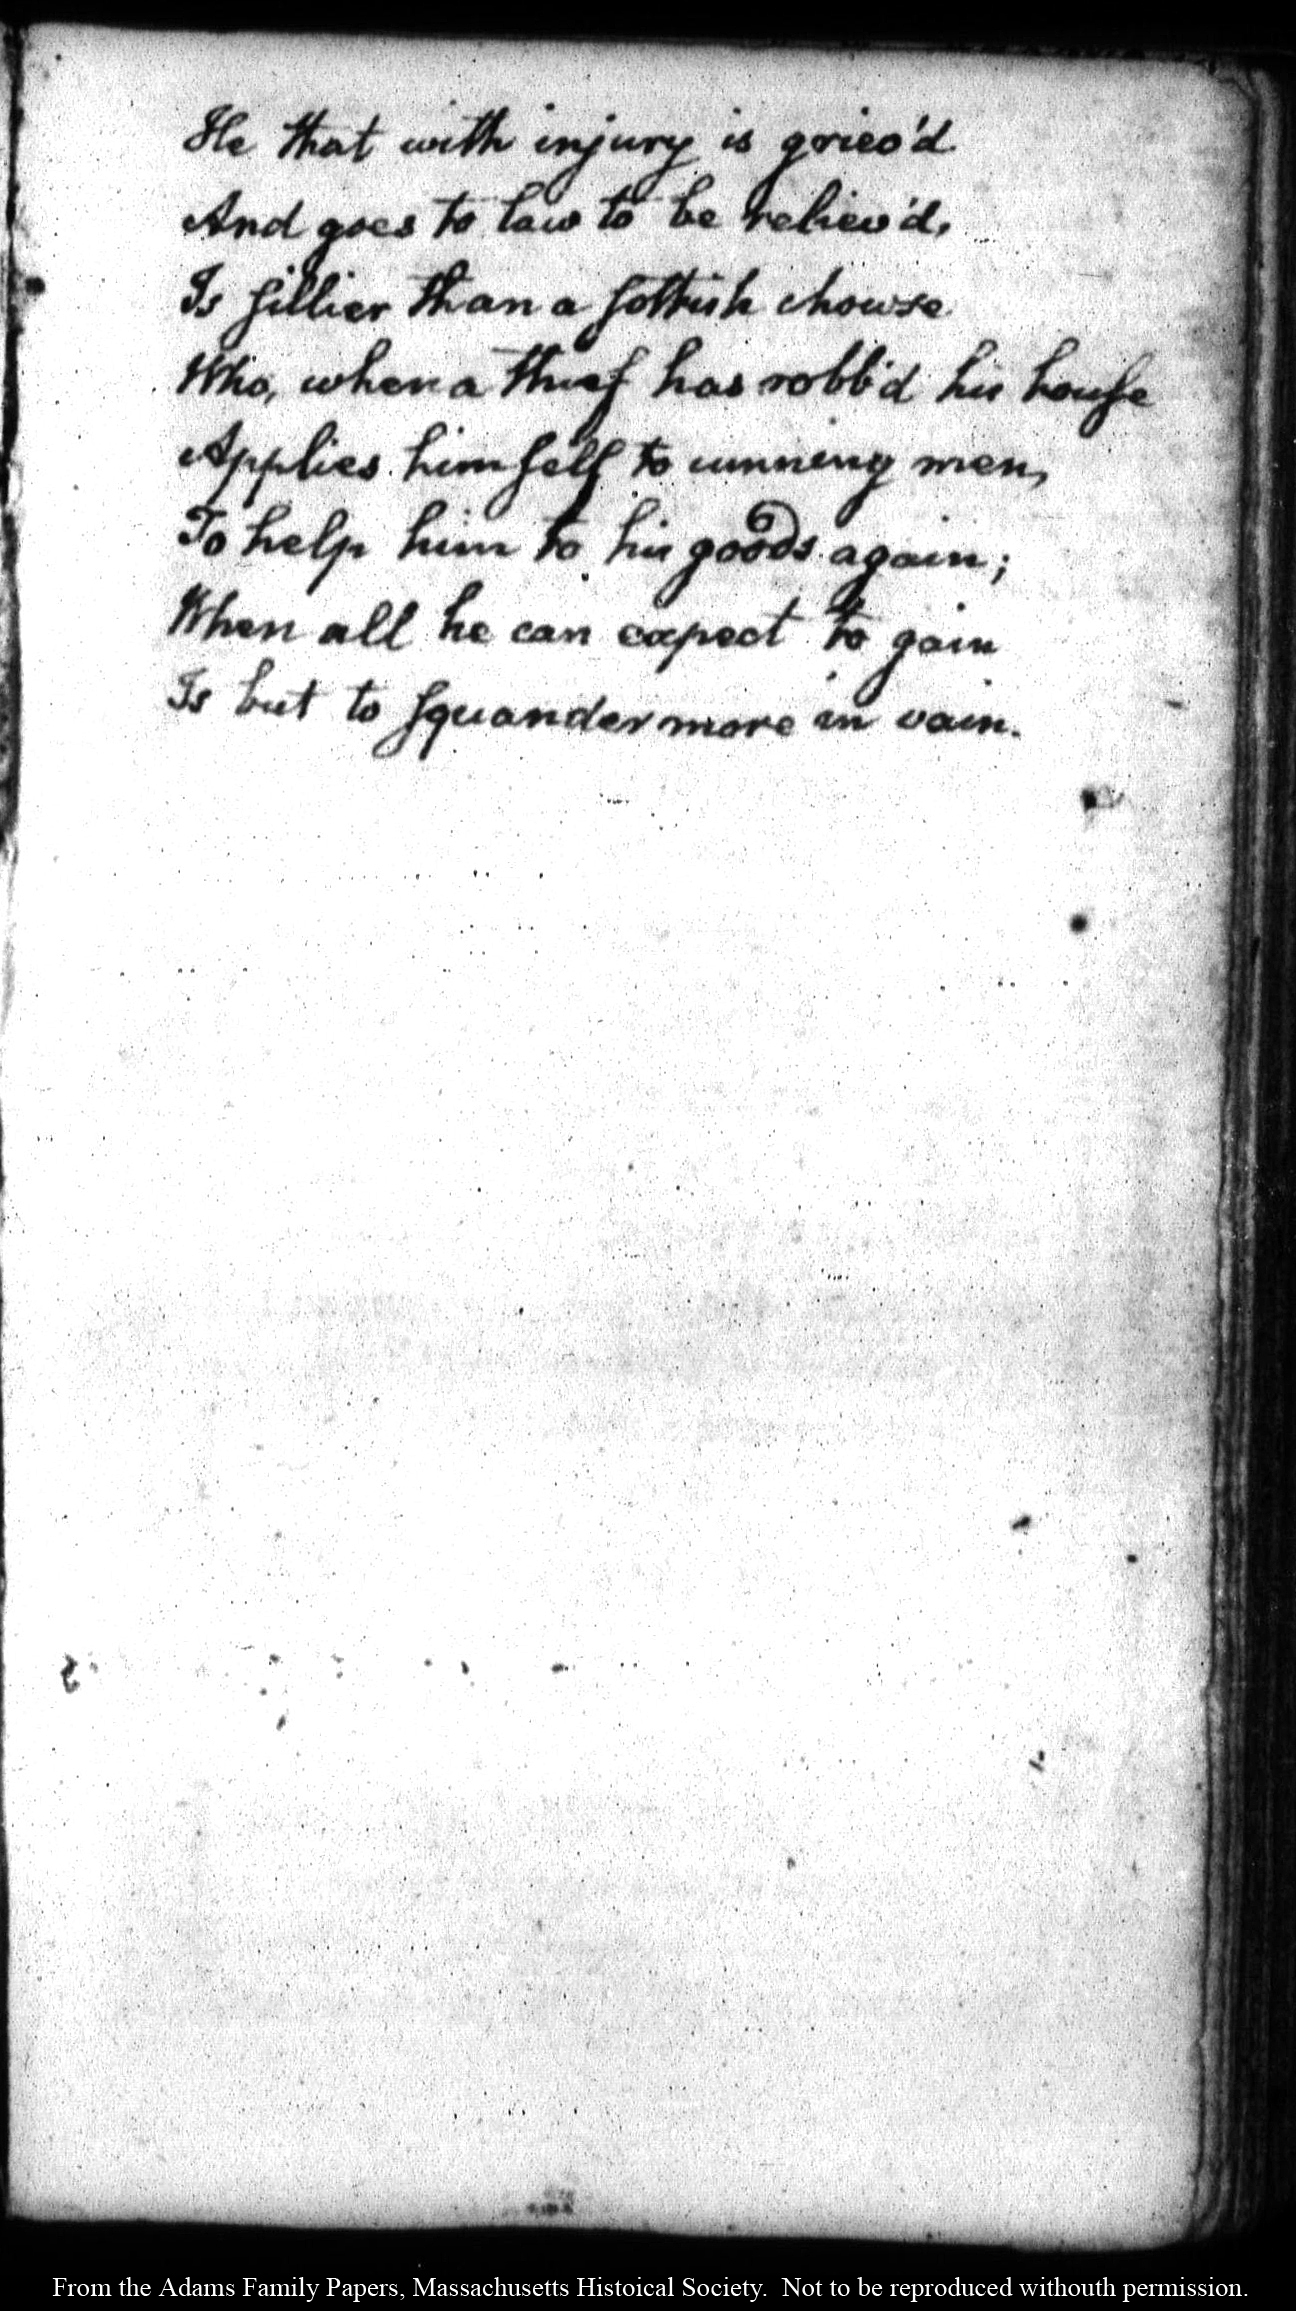 He that with injury is griev'd
And goes to law to be reliev'd,
Is sillier than a sottish chowse
Who, when a thief has robb'd his house
Applies himself to cunning men,
To help him to his goods again;
When all he can expect to gain
Is but to squander more in vain.
From the Adams Family Papers, Massachusetts Histoical Society. Not to be reproduced withouth permission.